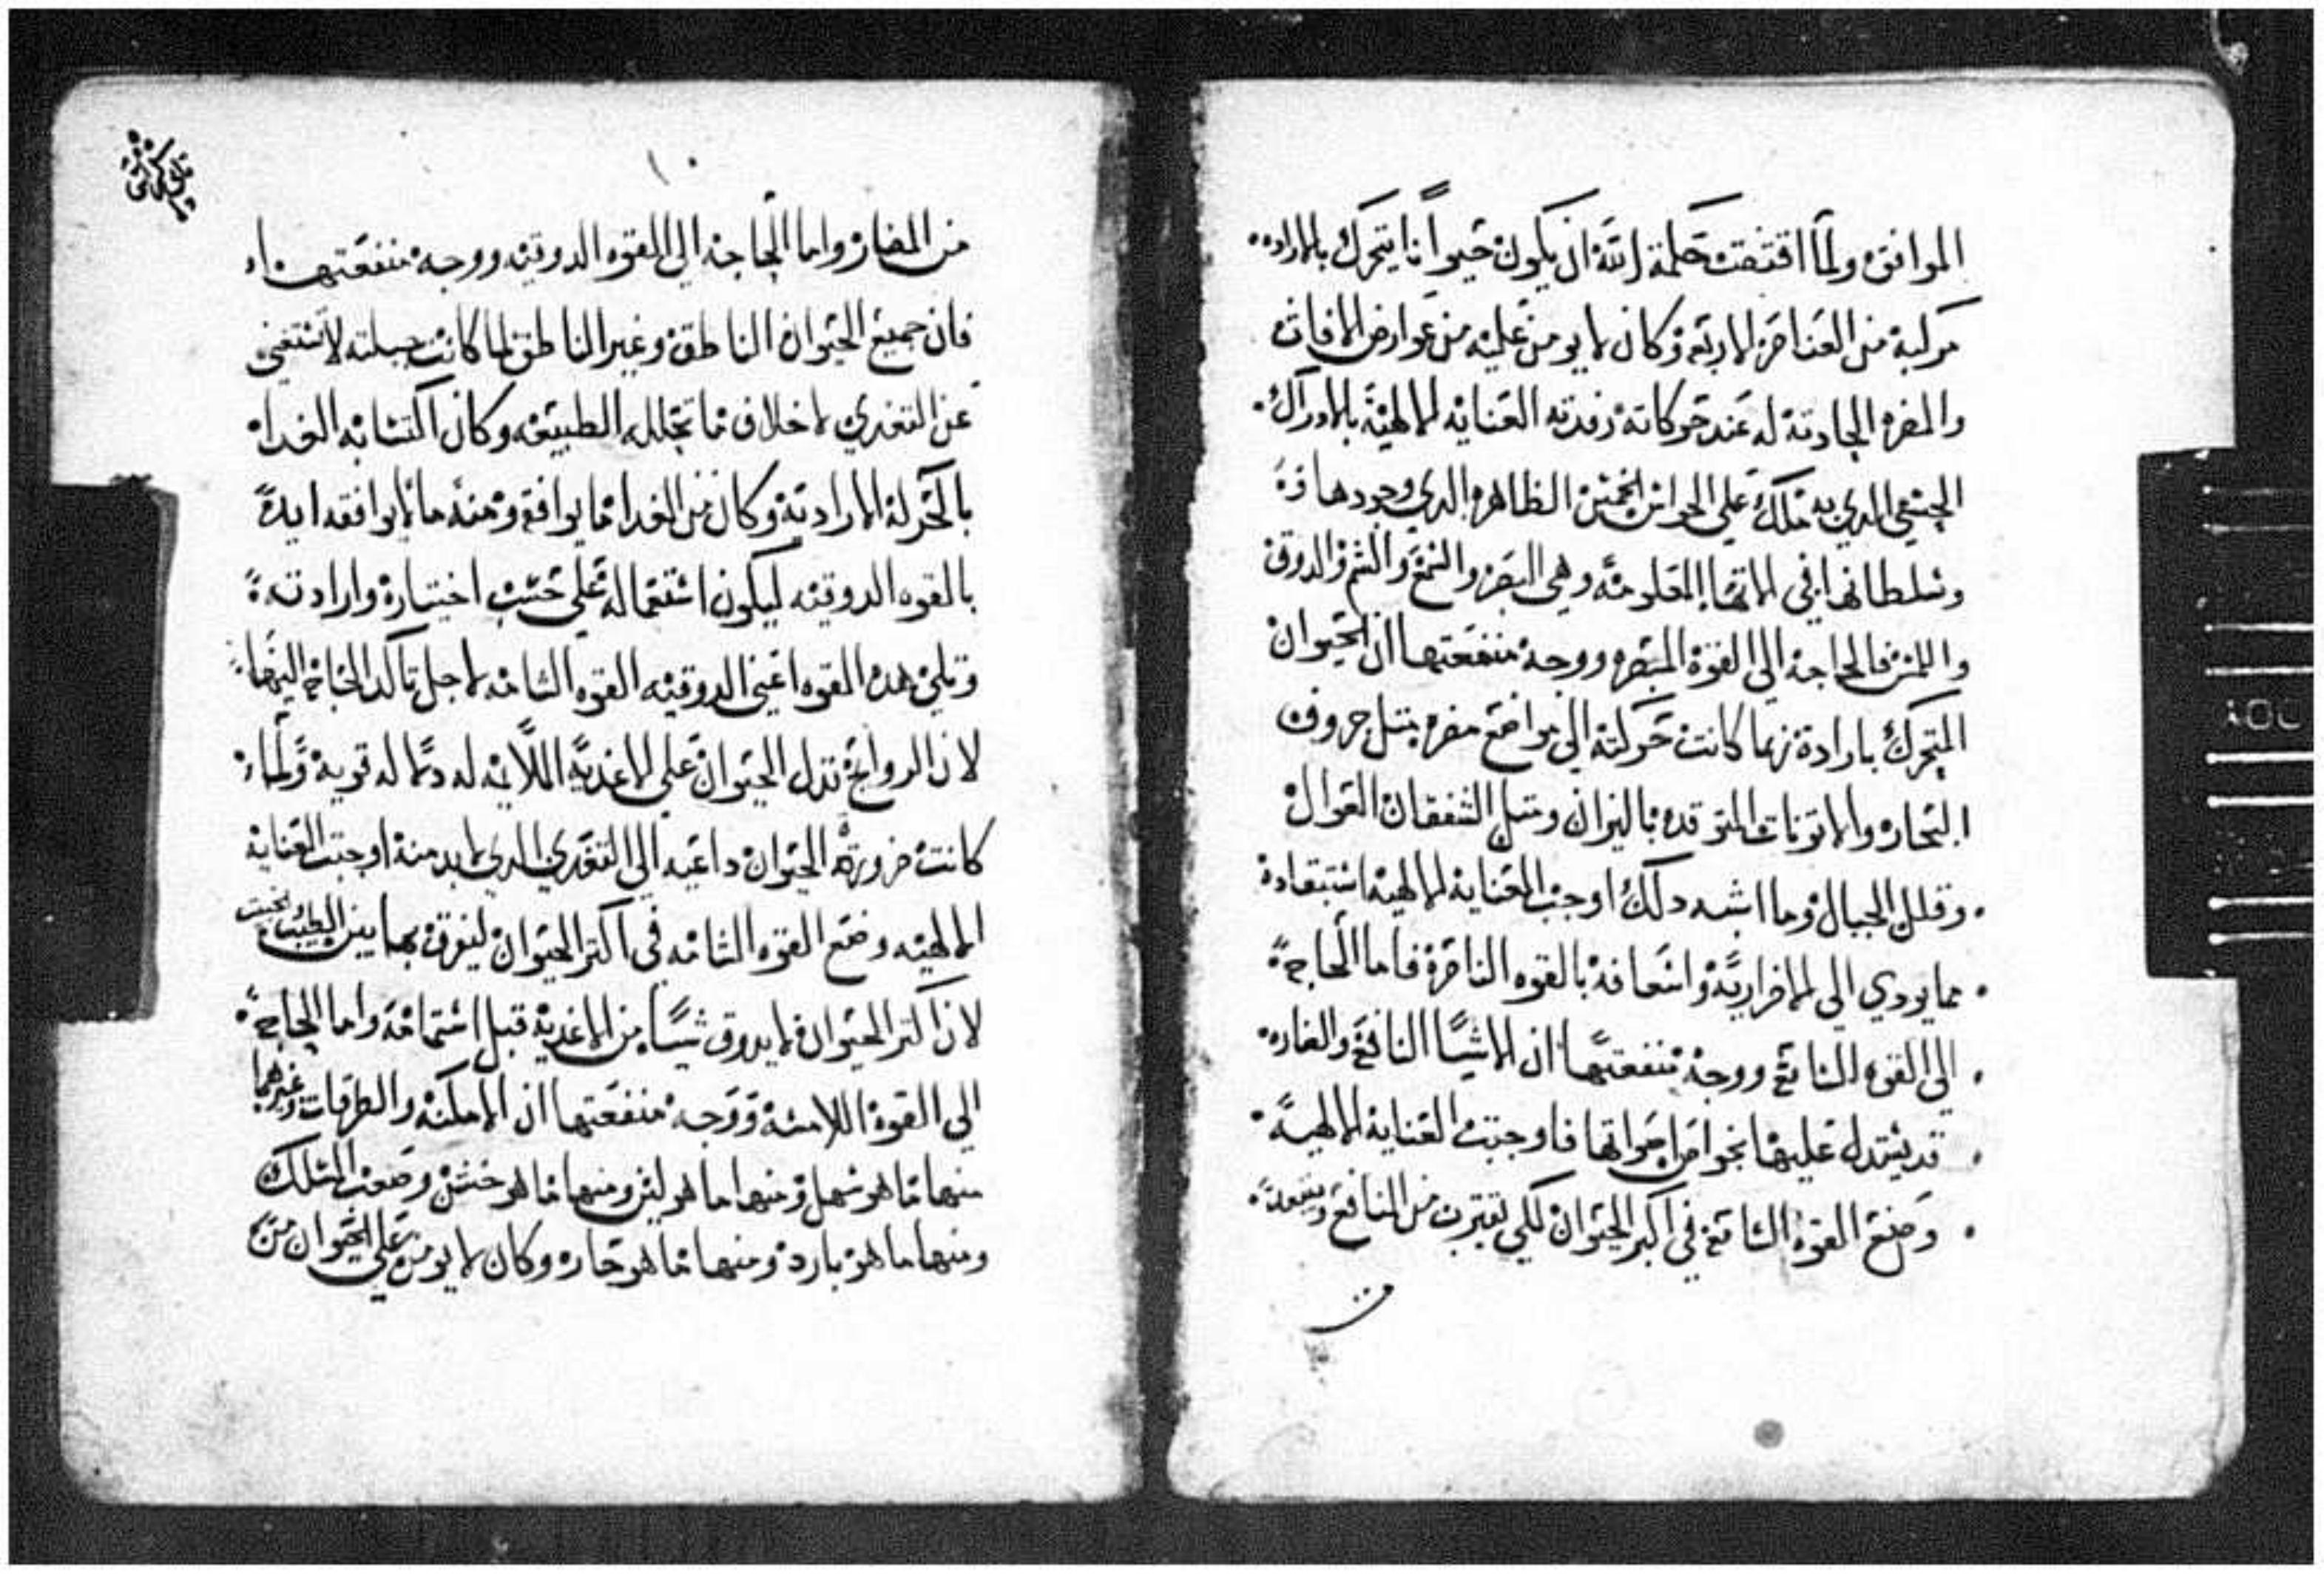 الموافق ولما اقتضت حكمة الله ان يكون حيواناً يتحرك بالاراده
مركبة من العناصر الاربعه وكان لا يومن عليه من عوارض الافات
والمضره الحادثة له عند حركاته رفدته العناية الالهية بالادراك
الحسي الدي به ملك على الحواس الخمس الظاهره الدي وجودها
وسلطانها في الاتها المعلومه وهي البصر والسمع والشم والدوق
واللمس فالحاجة الى القوة المبصره ووجه منفعتها ان الحيوان
المتحرك بارادة ربما كانت حركته الى مواضع مضره متل حروف
البحار والاتونات المتوقده بالنيران ومتل الشفقان العوال
وقلل الجبال وما اشبه دلك اوجبت العناية الالهية استبعاده
مما يودي الى الاضرار به واسعافه بالقوه الناظرة فاما الحاجة
الى القوه السامع ووجه منفعتها ان الاشيا النافع والضاره
قد يستدل عليها بخواص اصواتها فاوجبت العناية الالهية
وضع القوة السامع في اكبر الحيوان لكي تقترب من المنافع وتبعد
من
١٠
من المضار واما الحاجه الى القوه الدوقيه ووجه منفعتها
فان جميع الحيوان الناطق وغير الناطق لما كانت جبلته لا تستغني
عن التغدي لاخلاف ما تحلله الطبيعه وكان اكتسابه الغدا
بالحركة الارادية وكان من الغدا ما يوافق ومنه ما لا يوافقه ايده
بالقوه الدوقيه ليكون استعماله على حسب اختياره وارادته
وتلي هده القوه اعني الدوقيه القوه الشامه لاجل تاكد الحاجة اليها
لان الروايح تدل الحيوان على الاغدية الملايمه له دما له قوية ولما
كانت ضرورة الحيوان داعيه الى التغدي الدي لا بد منه اوجبت العناية
الالهيه وضع القوه الشامه في اكتر الحيوان ليفرق بها بين الطيب والخبيث
لان اكتر الحيوان لا يدوق شيا من الاغدية قبل اشتمامه واما الحاجة
الى القوة اللامسة ووجه منفعتها ان الامكنه والطرقات وغيرهما
منها ما هو سهل ومنها ما هو لين ومنها ما هو خشن وصعب المسلك
ومنها ما هو بارد ومنها ما هو حار وكان لا يومن على الحيوان من